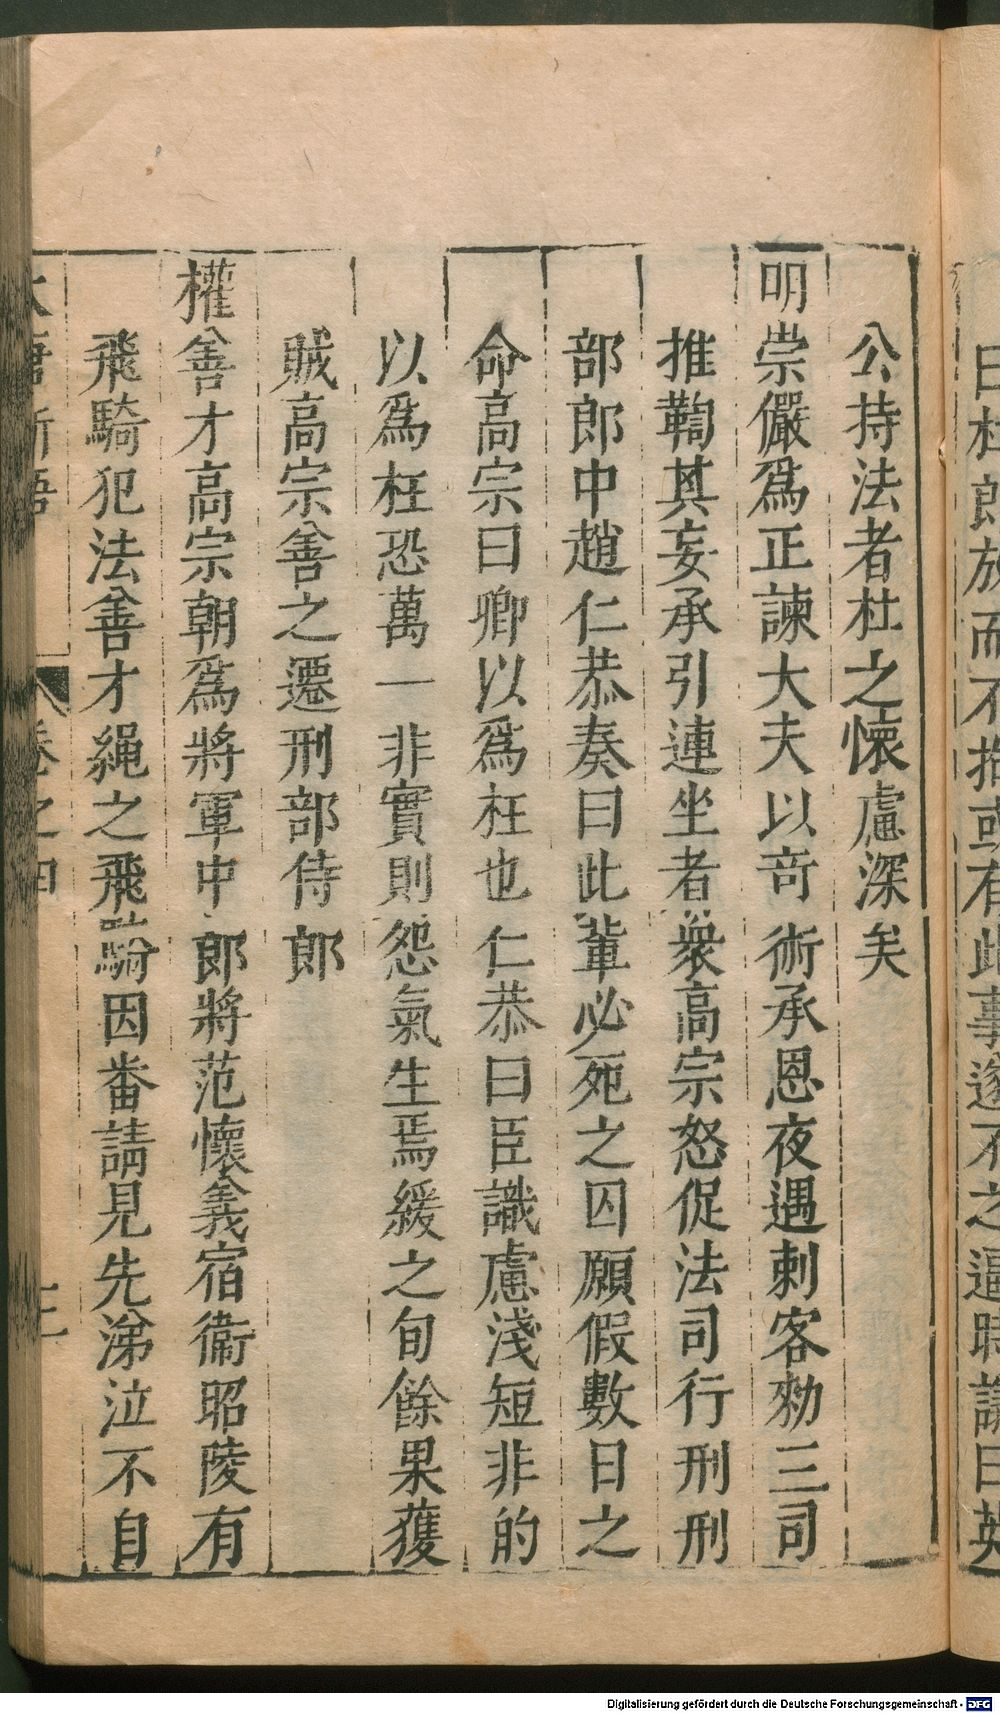 曰杜郎放而不拘或有此事遂不之逼時議曰英
公持法者杜之懐慮深矣
明崇儼爲正諫大夫以竒術承恩夜遇刺客勑三司
推鞫其妄承引連坐者衆高宗怒促法司行刑刑
部郎中趙仁恭奏曰此輩必死之囚願假數日之
命高宗曰卿以爲枉也仁恭曰臣識慮淺短非的
以爲枉恐萬一非實則怨氣生焉緩之旬餘果獲
賊高宗善之遷刑部侍郎
權善才高宗朝爲將軍中郎將范懷義宿衞昭陵有
飛騎犯法善才繩之飛騎因番請見先涕泣不自
大唐新語 卷之四 三
Digitalisierung gefördert durch die Deutsche Forschungsgemeinschaft - DFG